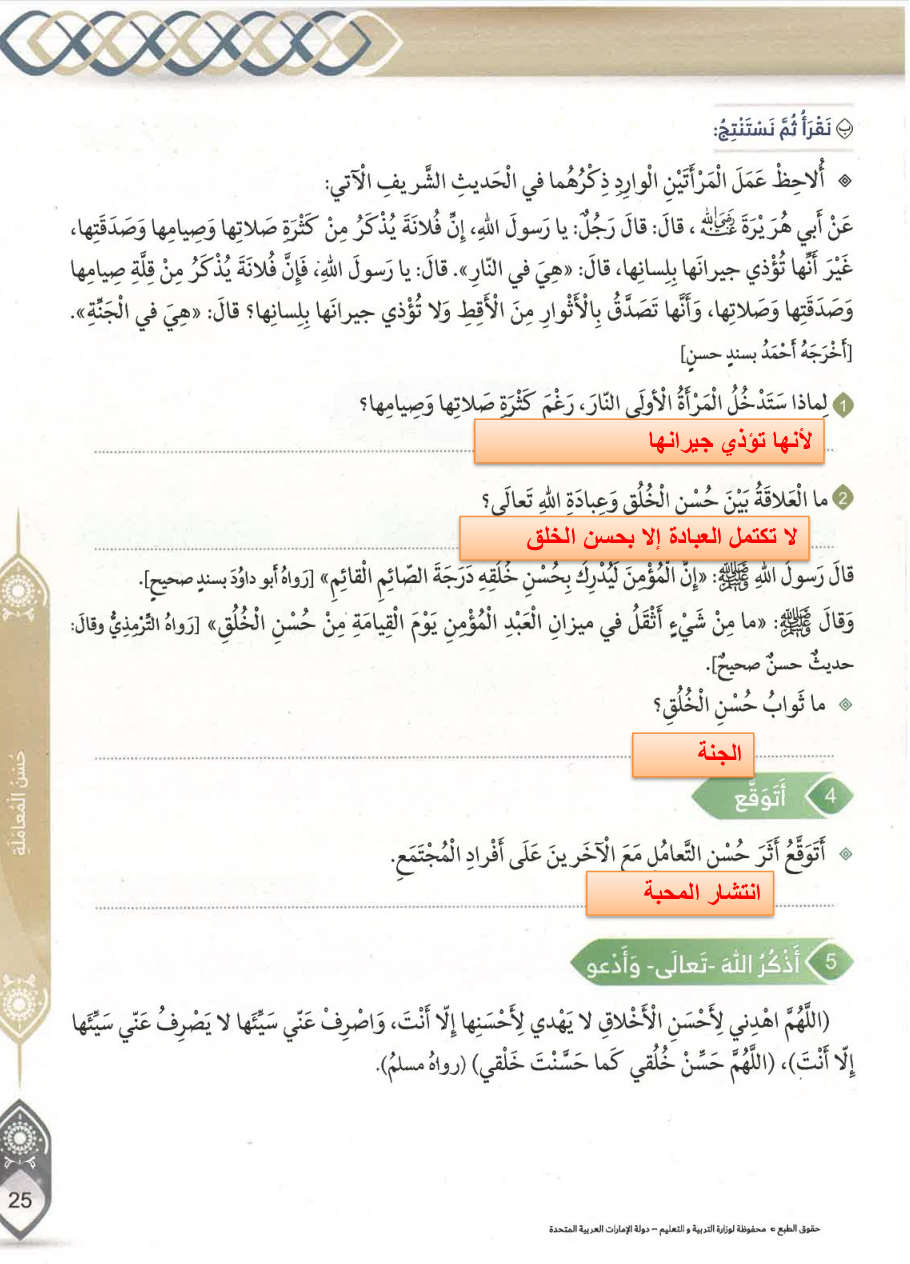 ب نَقْرَأُ ثُمَّ نَسْتَنْتِجُ:
أُلاحِظُ عَمَلَ الْمَرْأَتَيْنِ الْوارِدِ ذِكْرُهُما في الْحَديثِ الشَّريفِ الْآتي:
عَنْ أَبي هُرَيْرَةَ رَضِيَ اللَّهُ عَنْهُ، قالَ: قالَ رَجُلٌ: يا رَسولَ اللهِ، إِنَّ فُلانَةَ يُذْكَرُ مِنْ كَثْرَةِ صَلاتِها وَصِيامِها وَصَدَقَتِها،
غَيْرَ أَنَّها تُؤْذي جيرانَها بِلِسانِها، قالَ: «هِيَ في النّارِ». قالَ: يا رَسولَ اللهِ، فَإِنَّ فُلانَةَ يُذْكَرُ مِنْ قِلَّةِ صِيامِها
وَصَدَقَتِها وَصَلاتِها، وَأَنَّها تَصَدَّقُ بِالْأَثْوارِ مِنَ الْأَقِطِ وَلا تُؤْذي جيرانَها بِلِسانِها؟ قالَ: «هِيَ في الْجَنَّةِ».
[أَخْرَجَهُ أَحْمَدُ بسندٍ حسنٍ]
1 لِماذا سَتَدْخُلُ الْمَرْأَةُ الْأولَى النّارَ، رَغْمَ كَثْرَةِ صَلاتِها وَصِيامِها؟
لأنها تؤذي جيرانها
2 ما الْعَلاقَةُ بَيْنَ حُسْنِ الْخُلُقِ وَعِبادَةِ اللهِ تَعالَى؟
لا تكتمل العبادة إلا بحسن الخلق
قالَ رَسولُ اللهِ ﷺ: «إِنَّ الْمُؤْمِنَ لَيُدْرِكُ بِحُسْنِ خُلُقِهِ دَرَجَةَ الصّائِمِ الْقائِمِ» [رَواهُ أَبو داوُدَ بسندٍ صحيحٍ].
وَقالَ ﷺ: «ما مِنْ شَيْءٍ أَثْقَلُ في ميزانِ الْعَبْدِ الْمُؤْمِنِ يَوْمَ الْقِيامَةِ مِنْ حُسْنِ الْخُلُقِ» [رَواهُ التِّرْمِذِيُّ وقالَ:
حديثٌ حسنٌ صحيحٌ].
ما ثَوابُ حُسْنِ الْخُلُقِ؟
الجنة
4 أَتَوَقَّع
أَتَوَقَّعُ أَثَرَ حُسْنِ التَّعامُلِ مَعَ الْآخَرينَ عَلَى أَفْرادِ الْمُجْتَمَعِ.
انتشار المحبة
5 أَذْكُرُ اللهَ -تَعالَى- وَأَدْعو
(اللَّهُمَّ اهْدِني لِأَحْسَنِ الْأَخْلاقِ لا يَهْدي لِأَحْسَنِها إِلّا أَنْتَ، وَاصْرِفْ عَنّي سَيِّئَها لا يَصْرِفُ عَنّي سَيِّئَها
إِلّا أَنْتَ)، (اللَّهُمَّ حَسِّنْ خُلُقي كَما حَسَّنْتَ خَلْقي) (رواهُ مسلمُ).
حُسْنُ الْمُعامَلَةِ
25
حقوق الطبع © محفوظة لوزارة التربية و التعليم – دولة الإمارات العربية المتحدة